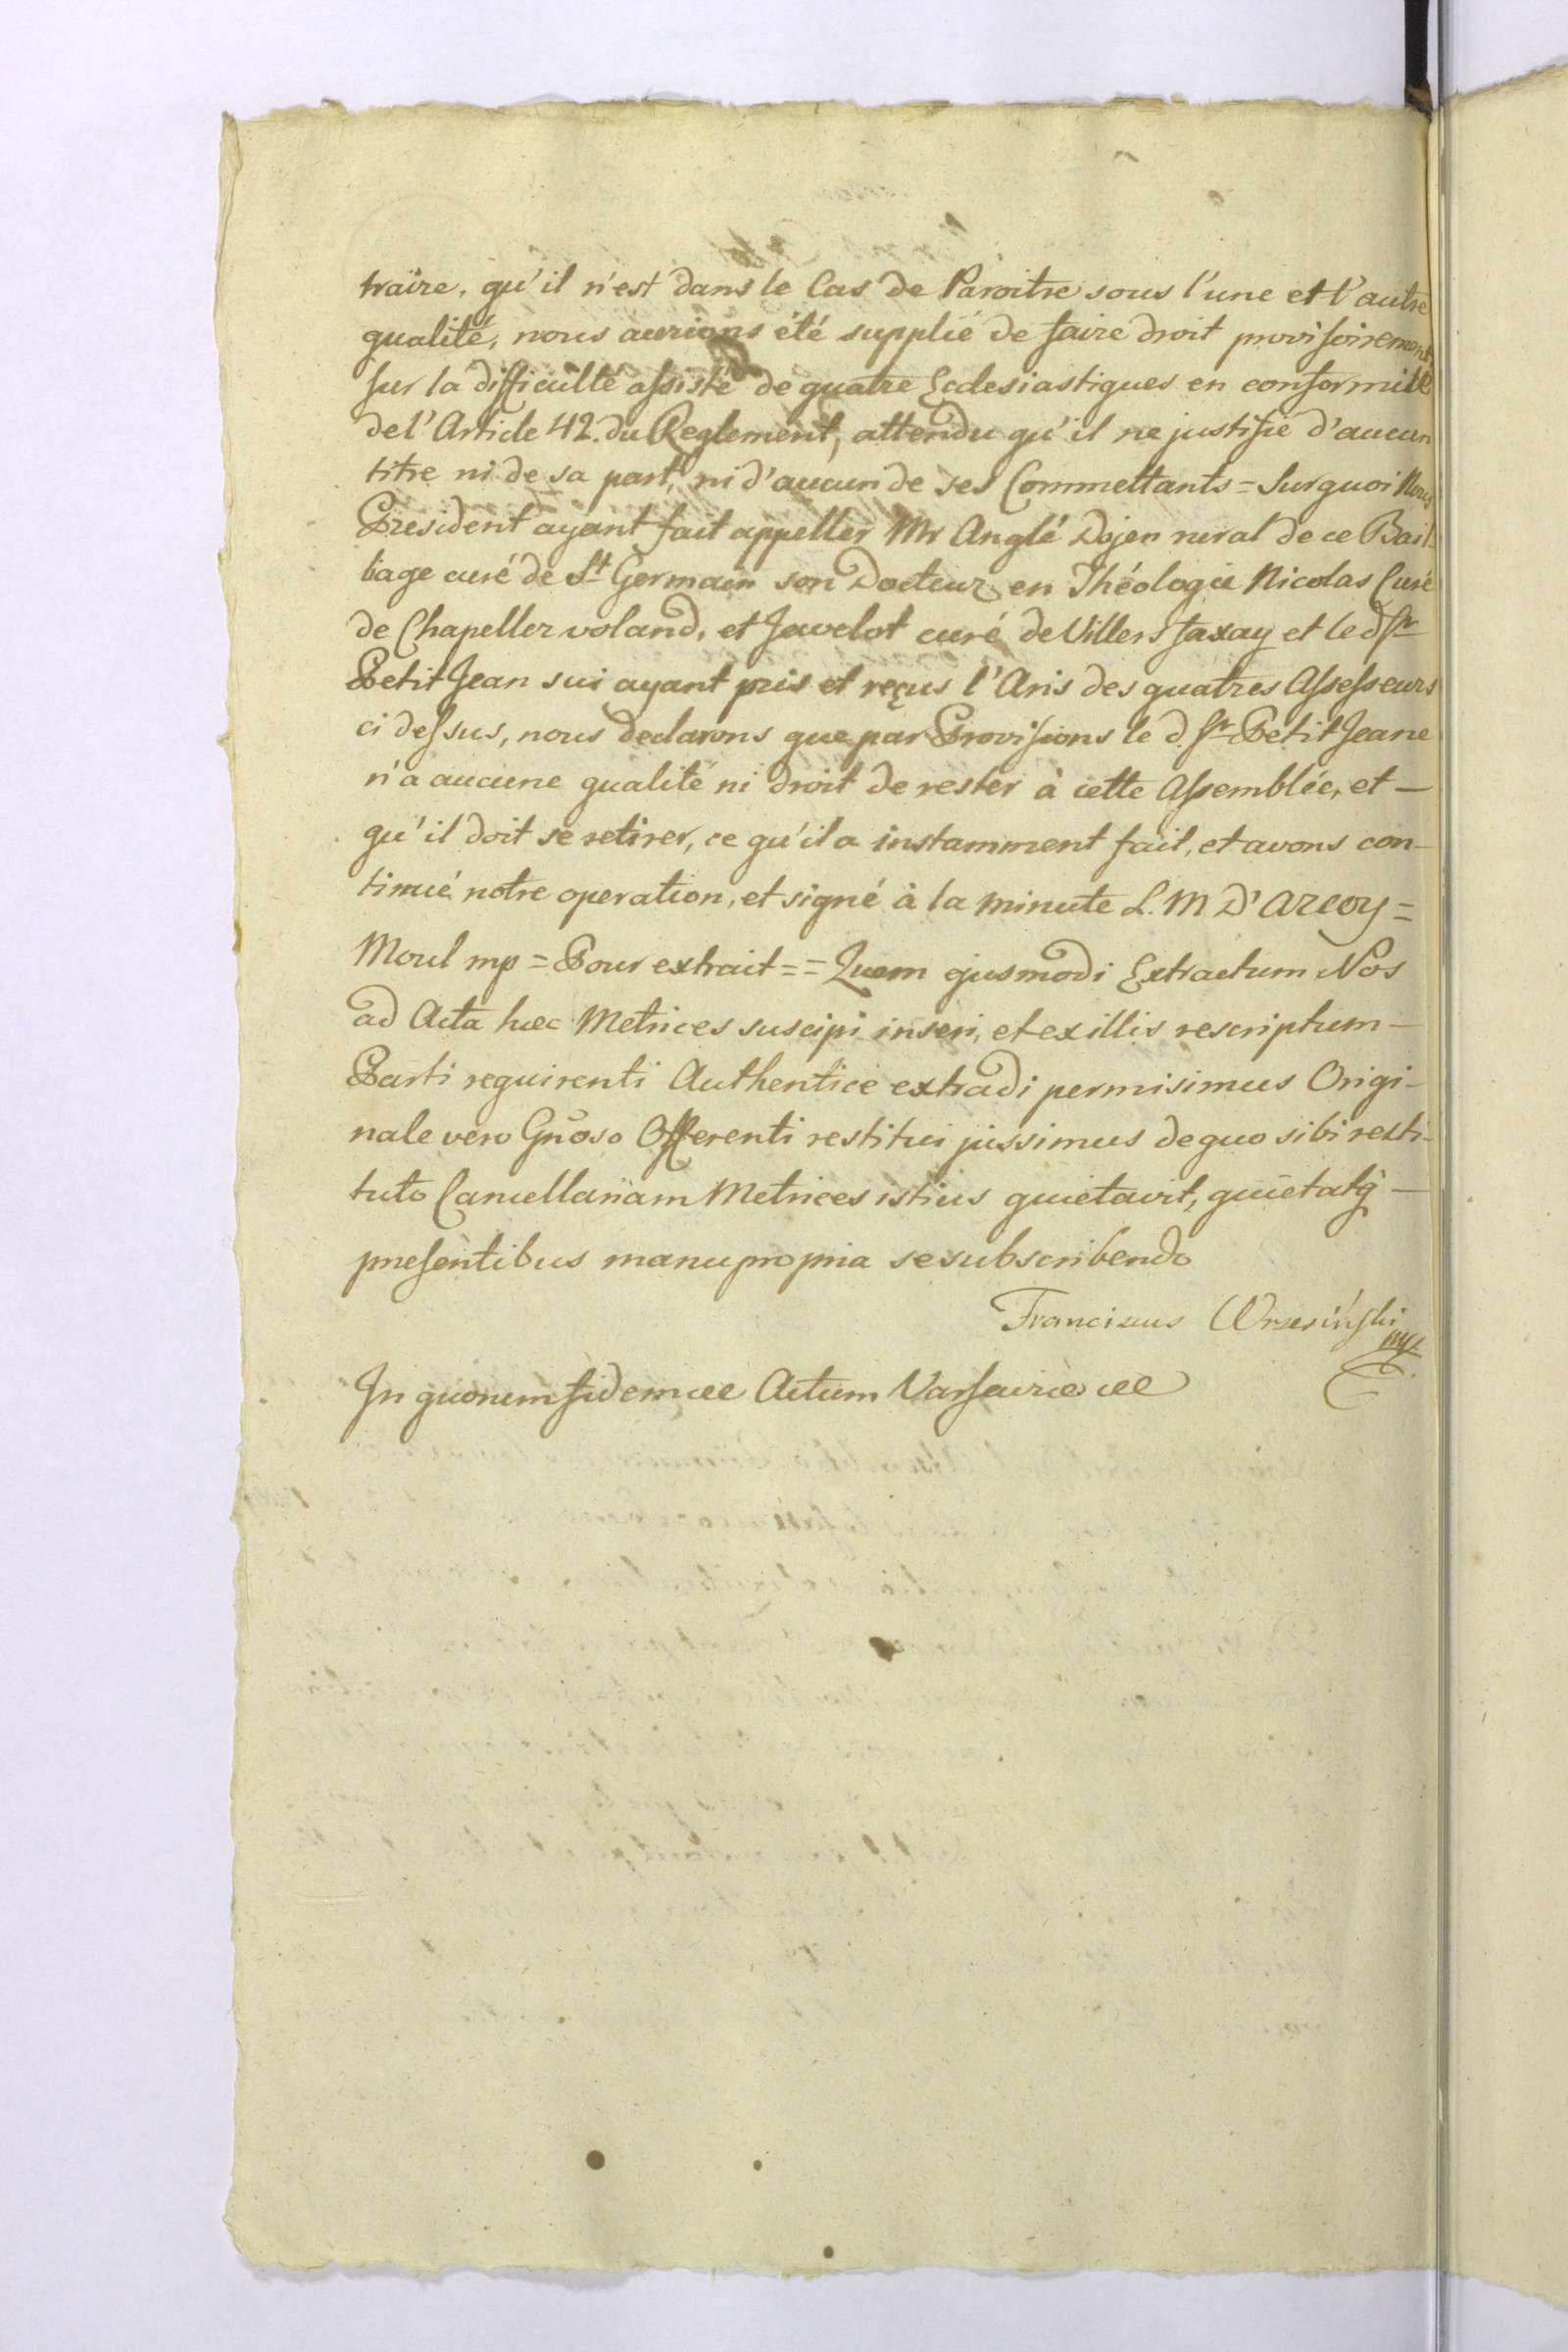 traire, qu'il n'est dans le Cas de Paroitre sous l'une et l'autre
qualité, nous aurions été supplié de faire droit provisoirement
sur la difficulté assisté de quatre Ecclesiastiques en conformité
de l'Article 42. du Reglement, attendu qu'il ne justifie d'aucun
titre ni de sa part, ni d'aucun de ses Commettants = Surquoi Nous
President ayant fait appeller Mr Anglé Dojen rural de ce Bail-
liage curé de St Germain son Docteur en Théologie Nicolas Curé
de Chapeller voland, et Javelot curé de Villers faxay et le d Sr
Petit Jean sui ayant pris et reçus l'Avis des quatres Assesseurs
ci dessus, nous declarons que par Provisions le d. Sr Petit Jeane
n'a aucune qualité ni droit de rester à cette Assemblée, et —
qu'il doit se retirer, ce qu'il a instamment fait, et avons con-
tinué notre operation, et signé à la minute L. M D'Arcoy =
Moul mp = Pour extrait = = Quem ejusmodi Extractum Nos
ad Acta hæc Metrices suscipi inseri, et ex illis rescriptum —
Parti requirenti Authentice extradi permisimus Origi-
nale vero Gnoso Offerenti restitui jussimus de quo sibi resti-
tuto Cancellariam Metrices istius quietavit, quietatq —
presentibus manu propria se subscribendo
Franciscus Wrzesiński
mp.
In quorum fidem etc Actum Varsaviæ etc